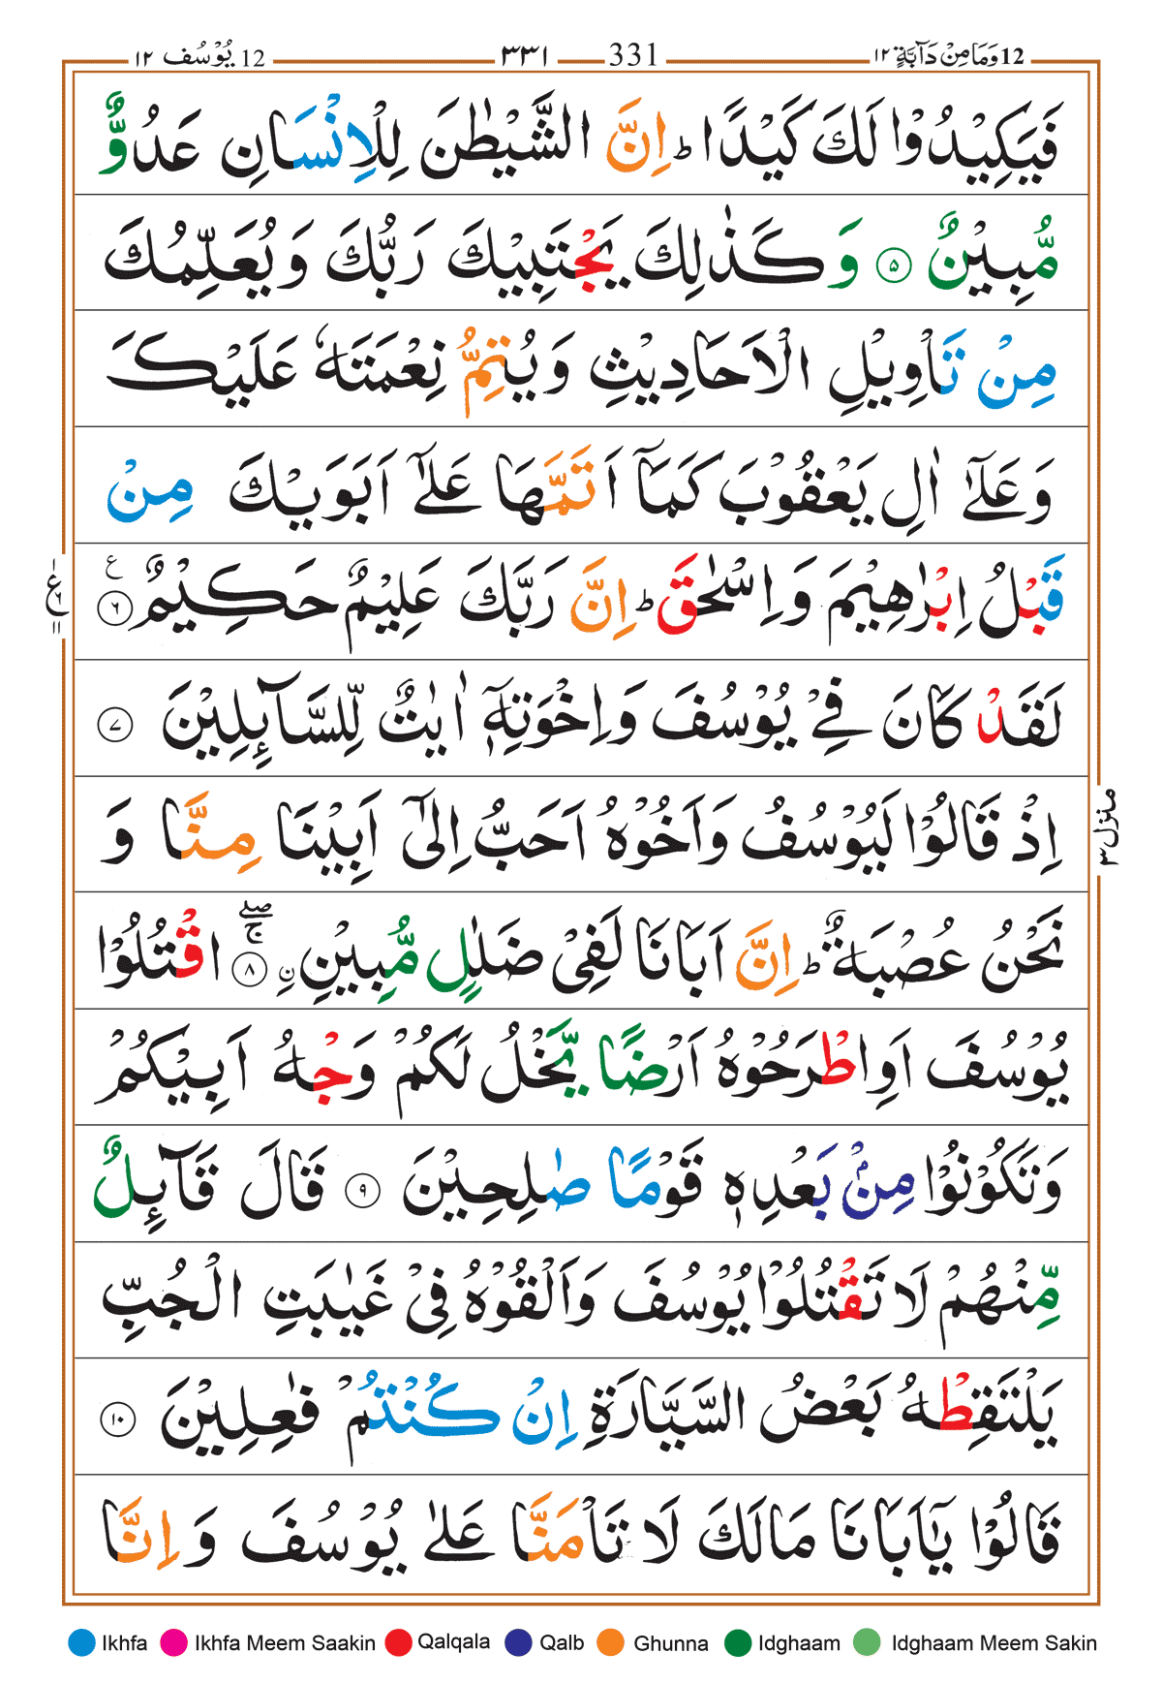 12 وَمَا مِنْ دَآبَّةٍ ١٢ 331 ٣٣١ 12 يُوْسُف ١٢
فَيَكِيْدُوْا لَكَ كَيْدًا ؕ اِنَّ الشَّيْطٰنَ لِلْاِنْسَانِ عَدُوٌّ
مُّبِيْنٌ ۵ وَ كَذٰلِكَ يَجْتَبِيْكَ رَبُّكَ وَ يُعَلِّمُكَ
مِنْ تَاْوِيْلِ الْاَحَادِيْثِ وَ يُتِمُّ نِعْمَتَهٗ عَلَيْكَ
وَ عَلٰۤى اٰلِ يَعْقُوْبَ كَمَاۤ اَتَمَّهَا عَلٰۤى اَبَوَيْكَ مِنْ
قَبْلُ اِبْرٰهِيْمَ وَ اِسْحٰقَ ؕ اِنَّ رَبَّكَ عَلِيْمٌ حَكِيْمٌ ۶ ع
لَقَدْ كَانَ فِيْ يُوْسُفَ وَ اِخْوَتِهٖۤ اٰيٰتٌ لِّلسَّآىِٕلِيْنَ ۷
اِذْ قَالُوْا لَيُوْسُفُ وَ اَخُوْهُ اَحَبُّ اِلٰۤى اَبِيْنَا مِنَّا وَ
نَحْنُ عُصْبَةٌ ؕ اِنَّ اَبَانَا لَفِيْ ضَلٰلٍ مُّبِيْنِ ۸ اقْتُلُوْا
يُوْسُفَ اَوِ اطْرَحُوْهُ اَرْضًا يَّخْلُ لَكُمْ وَجْهُ اَبِيْكُمْ
وَ تَكُوْنُوْا مِنْۢ بَعْدِهٖ قَوْمًا صٰلِحِيْنَ ۹ قَالَ قَآىِٕلٌ
مِّنْهُمْ لَا تَقْتُلُوْا يُوْسُفَ وَ اَلْقُوْهُ فِيْ غَيٰبَتِ الْجُبِّ
يَلْتَقِطْهُ بَعْضُ السَّيَّارَةِ اِنْ كُنْتُمْ فٰعِلِيْنَ ۱۰
قَالُوْا يٰۤاَبَانَا مَا لَكَ لَا تَاْمَنَّا عَلٰى يُوْسُفَ وَ اِنَّا
منزل ٣
Ikhfa Ikhfa Meem Saakin Qalqala Qalb Ghunna Idghaam Idghaam Meem Sakin